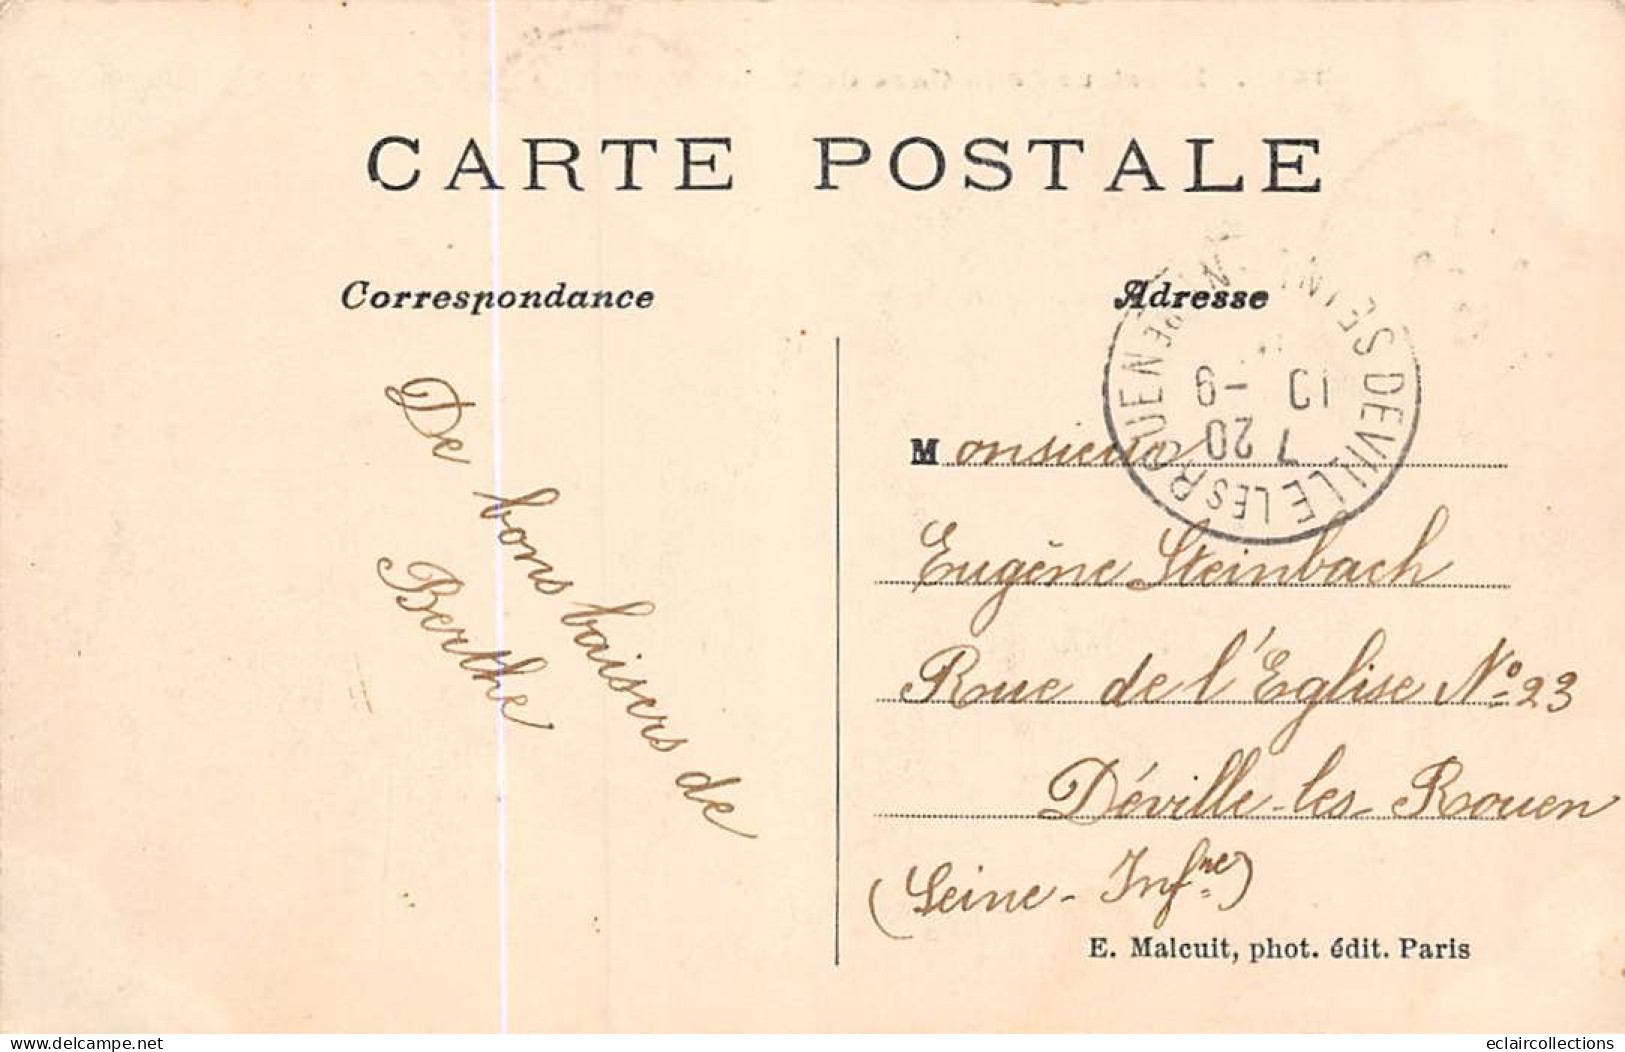 CARTE POSTALE
Correspondance
Adresse
De bons baisers de
Berthe
DEVILLE LES ROUEN
7 20
Monsieur
Eugène Steinbach
Rue de l'Eglise No 23
Déville-les-Rouen
(Seine-Infre)
E. Malcuit, phot. édit. Paris
www.delcampe.net
eclaircollections